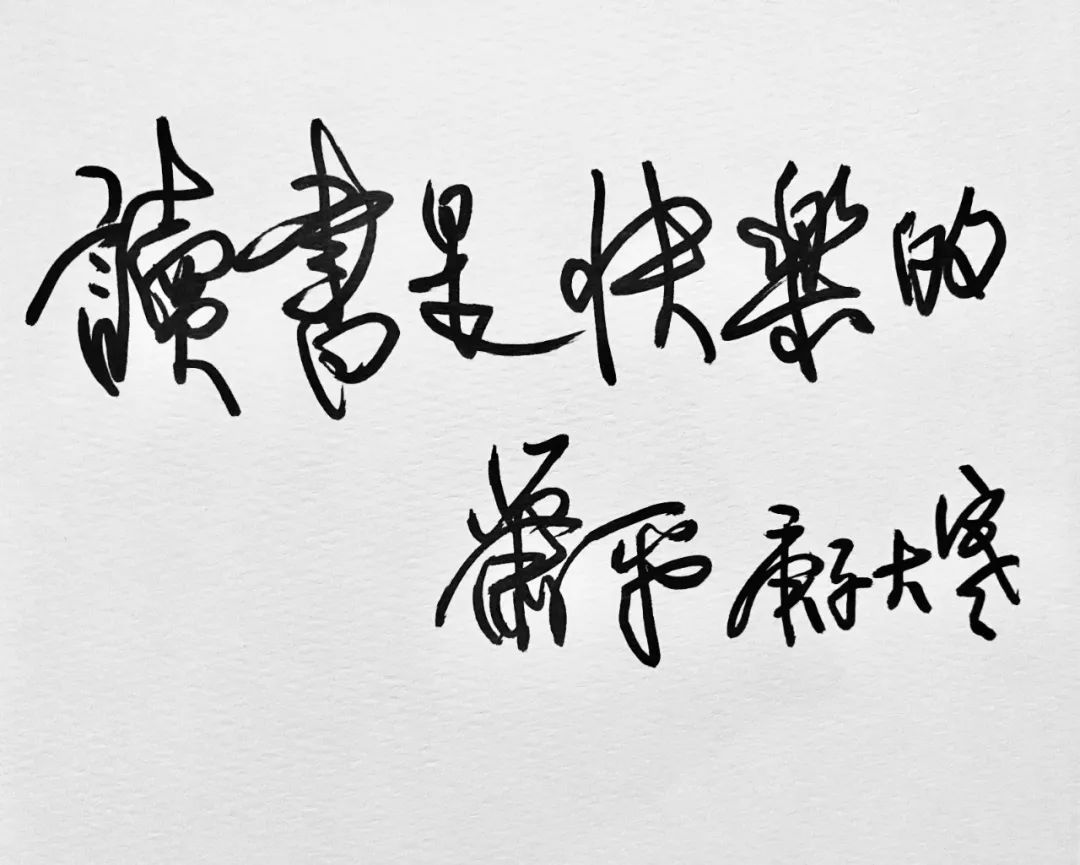 讀書是快樂的
蕭平 庚子大寒